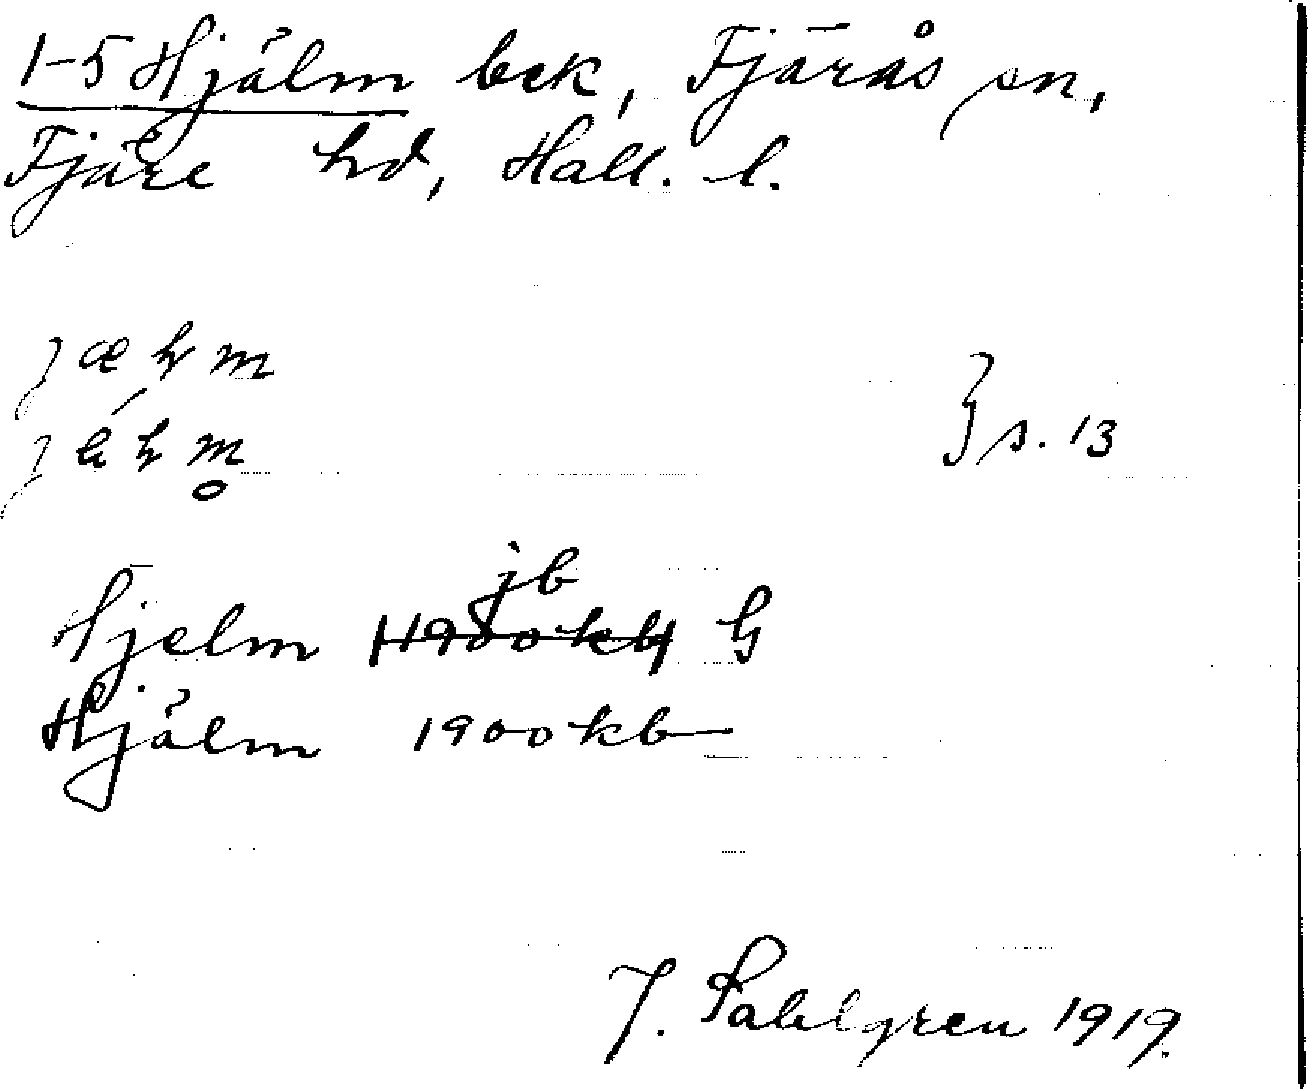 1-5 Hjälm bek, Fjärås sn,
Fjäre hd, Hall. l.
s. 13
jb
Hjelm 1900 kb G
Hjälm 1900 kb
J. Sahlgren 1919.